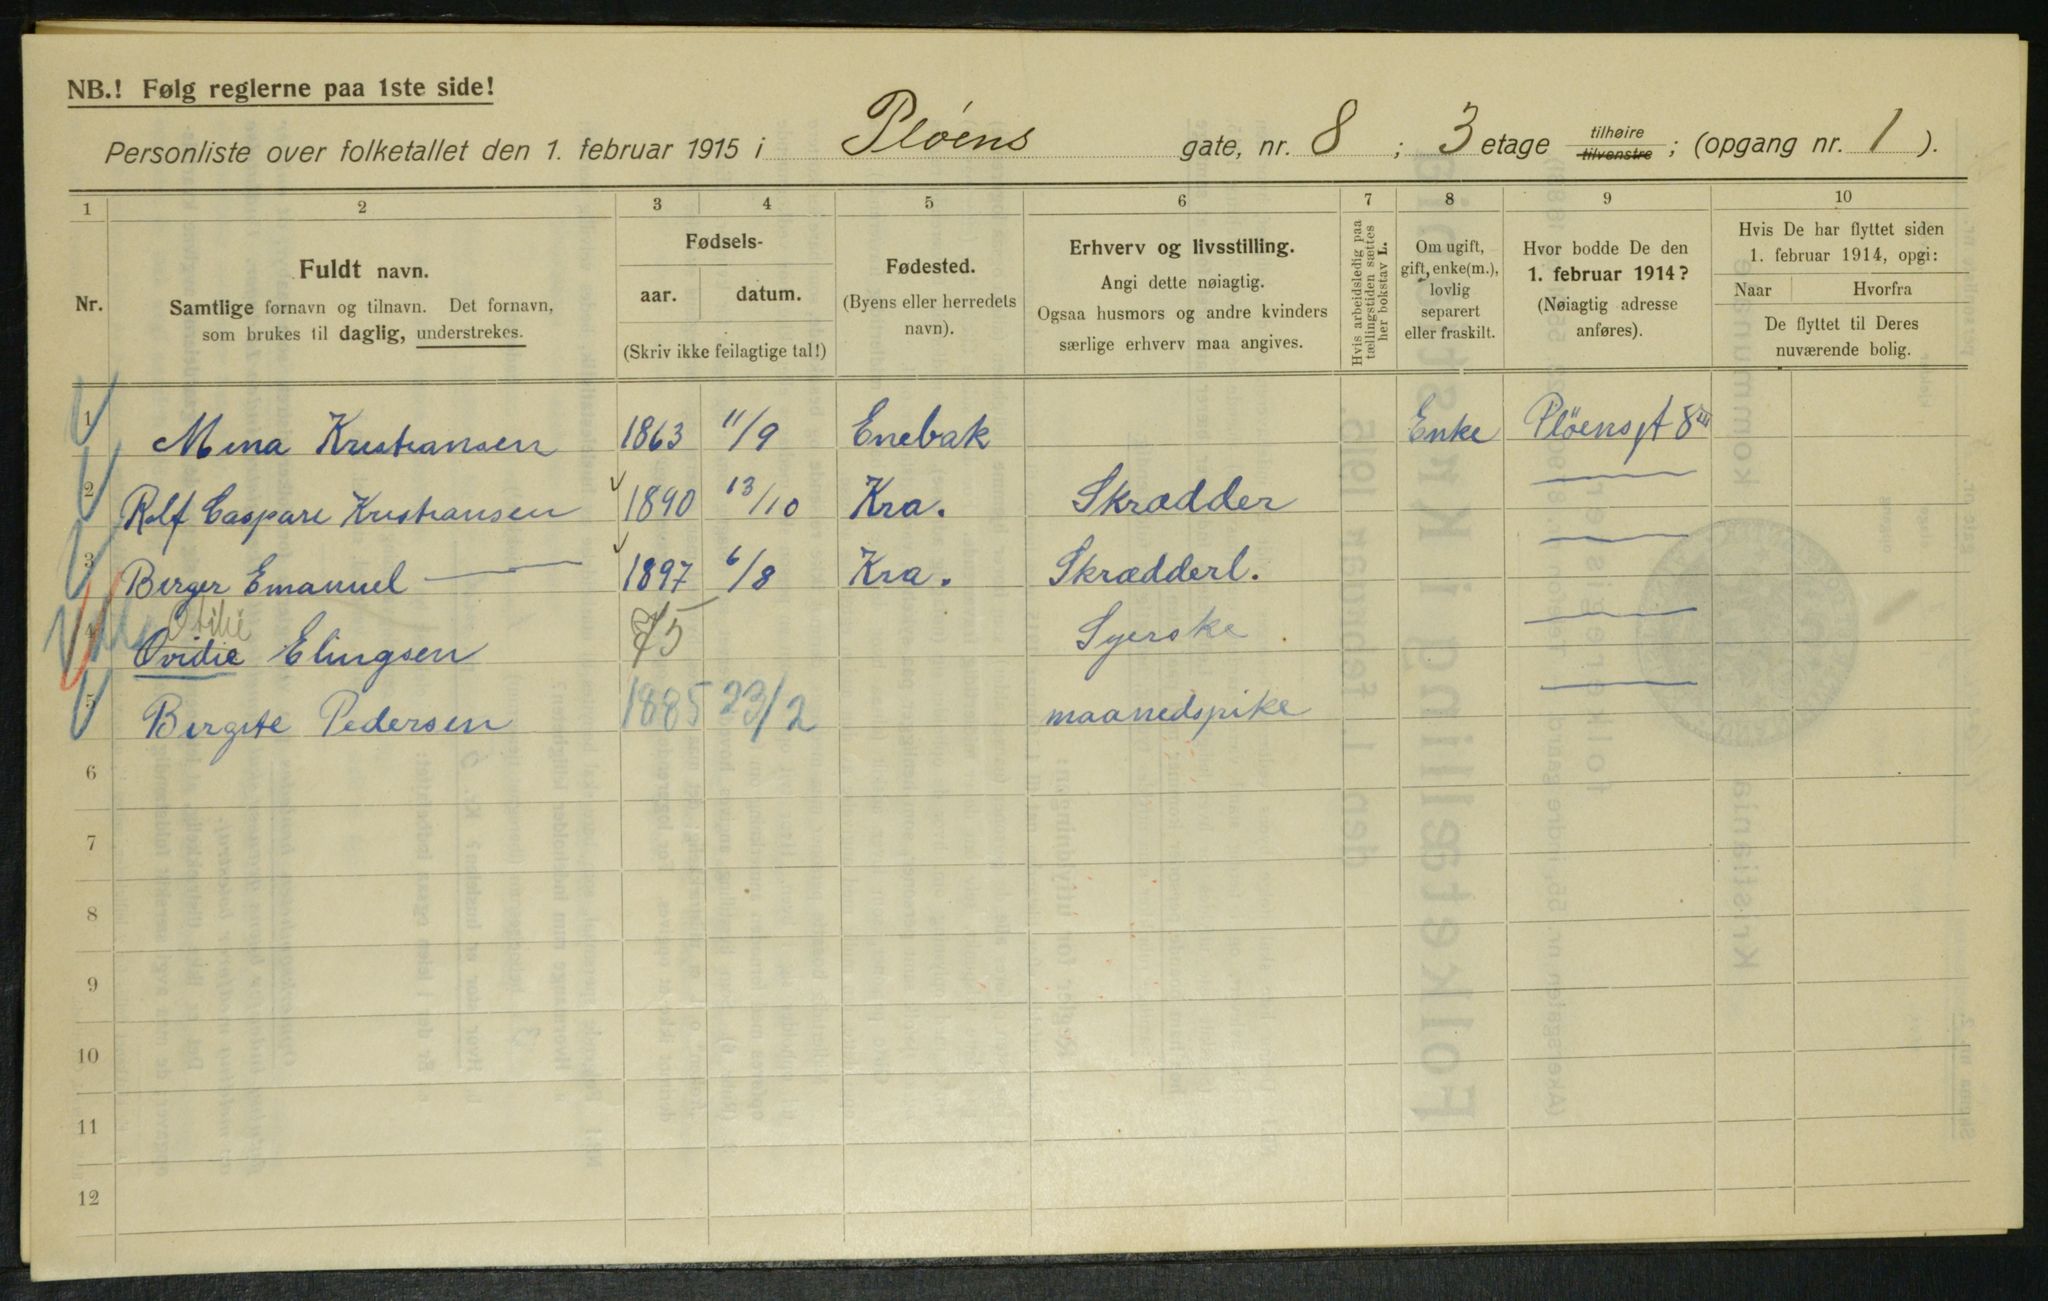 NB.! Følg reglerne paa 1ste side!
Personliste over folketallet den 1. februar 1915 i Pløens gate, nr. 8 ; 3 etage tilhøire tilvenstre ; (opgang nr. 1 ).
1 2 3 4 5 6 7 8 9 10
Nr.
Fuldt navn.
Samtlige fornavn og tilnavn. Det fornavn,
som brukes til daglig, understrekes.
Fødsels-
aar. datum.
(Skriv ikke feilagtige tal!)
Fødested.
(Byens eller herredets
navn).
Erhverv og livsstilling.
Angi dette nøiagtig.
Ogsaa husmors og andre kvinders
særlige erhverv maa angives.
Hvis arbeidsledig paa
tællingstiden sættes
her bokstav L.
Om ugift,
gift, enke(m.),
lovlig
separert
eller fraskilt.
Hvor bodde De den
1. februar 1914?
(Nøiagtig adresse
anføres).
Hvis De har flyttet siden
1. februar 1914, opgi:
Naar Hvorfra
De flyttet til Deres
nuværende bolig.
1 Mina Kristiansen 1863 11/9 Enebak Enke Plöensgt 8 III
2 Rolf Caspare Kristiansen 1890 13/10 Kra. Skrædder —
3 Berger Emanuel — 1897 6/8 Kra. Skrædderl. —
4 Ovidie Elingsen 75 Syerske —
5 Birgite Pedersen 1885 23/2 maanedspike —
6
7
8
9
10
11
12